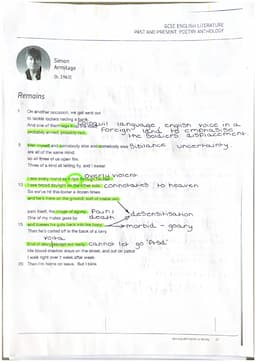 GCSE ENGLISH LITERATURE
PAST AND PRESENT: POETRY ANTHOLOGY
Simon
Armitage
(b. 1963)
Remains
1 On another occasion, we get sent out
to tackle looters raiding a bank.
And one of them legs it up the road,
language, english voice in a
probably armed, possibly not.
foreign land to emphasise
the soldiers displacement.
5 Well myself and somebody else and somebody else
Sibilance uncertainty
are all of the same mind,
so all three of us open fire.
Three of a kind all letting fly, and I swear
overly violent
I see every round as it rips through his life –
10 I see broad daylight on the other side.
connotates to heaven
So we've hit this looter a dozen times
and he's there on the ground, sort of inside out,
pain itself, the image of agony.
Pain /
death
desensitisation
One of my mates goes by
15 and tosses his guts back into his body.
morbid - goary
Then he's carted off in the back of a lorry.
End of story, except not really.
cannot let go "Ptsd"
His blood-shadow stays on the street, and out on patrol
I walk right over it week after week.
20 Then I'm home on leave. But I blink